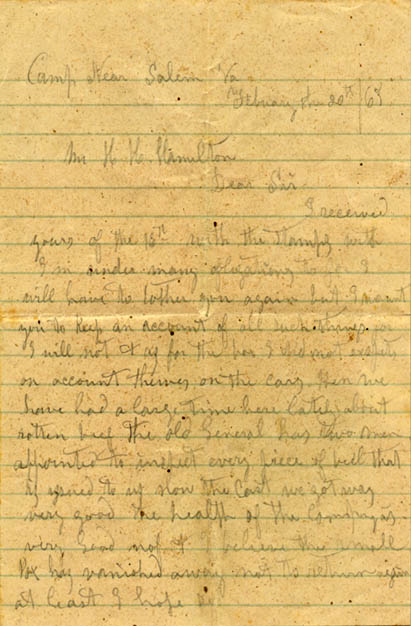 Camp Near Salem Va
February the 20th /65
Mr H H Hamilton
Dear Sir
I received
yours of the 15th with the stamps with
I m under many obligations to you I
will have to bother you again but I want
you to keep an account of all such things or
I will not & as for the box I did not expect
on account thieves on the cars then we
have had a large time here lately about
rotten beef the old General has two men
appointed to inspect every piece of beef that
is issued to us now the last we got was
very good the health of the Company is
very good not believe the small
Pox has vanished away not to return again
at least I hope